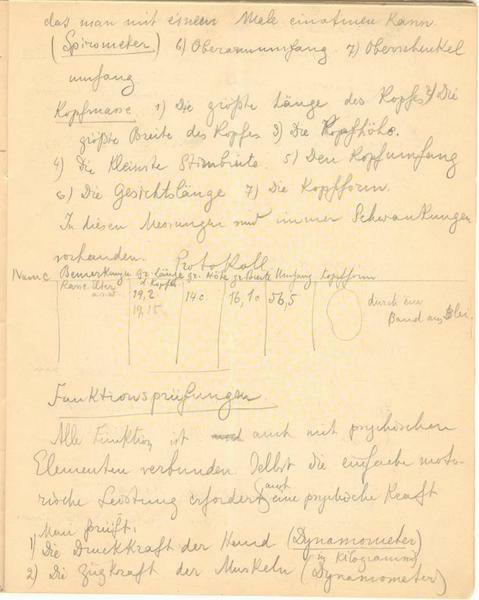 das man mit einem Male einatmen kann.
(Spirometer) 6) Oberarmumfang 7) Oberschenkel
umfang
Kopfmasse. 1) Die größte Länge des Kopfes 2) Die
größte Breite des Kopfes 3) Die Kopfhöhe.
4) Die kleinste Stirnbreite. 5) Den Kopfumfang
6) Die Gesichtslänge 7) Die Kopfform.
In diesen Messungen sind immer Schwankungen
vorhanden. Protokoll
Name Bemerkungen gr. Länge gr. Höhe gr. Breite Umfang Kopfform
Rasse Alter d. Kopfes
u.s.w. 19,2 14 c. 16,1 c 56,5 durch ein
19.15 Band aus Blei.
Funktionsprüfungen.
Alle Funktion ist auch mit psychischen
Elementen verbunden. Selbst die einfache moto-
rische Leistung erfordert auch eine psychische Kraft
Man prüft:
1) Die Druckkraft der Hand (Dynamometer)
in Kilogramm
2) Die Zugkraft der Muskeln (Dynamometer)